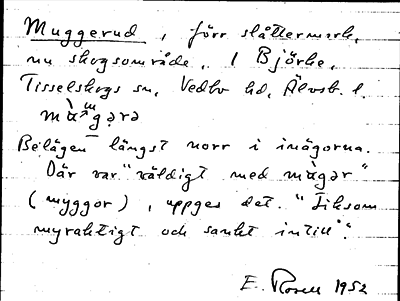 Muggerud, förr slåttermark,
nu skogsområde, i Björke,
Tisselskogs sn, Vedbo hd, Älvsb. l.
Belägen längst norr i inägorna.
Där var "väldigt med
(myggor), uppges det. "Liksom
myraktigt och sankt intill".
E. Rosell 1952